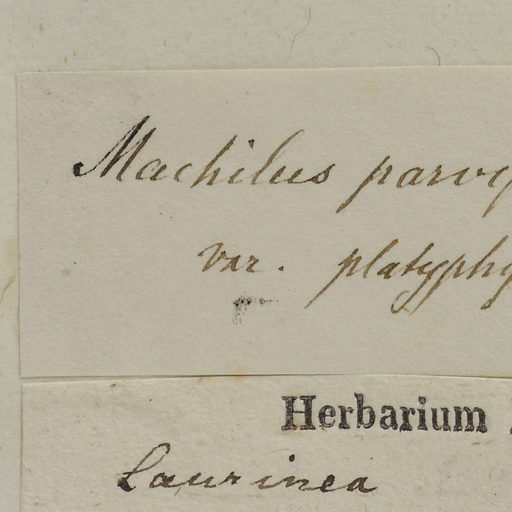 Machilus parv
var. platyphy
Herbarium
Laurinea